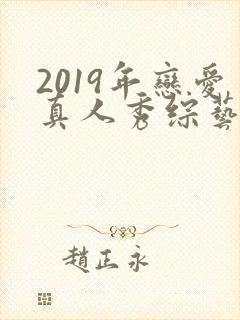 2019年戀愛
真人秀綜藝
趙正永